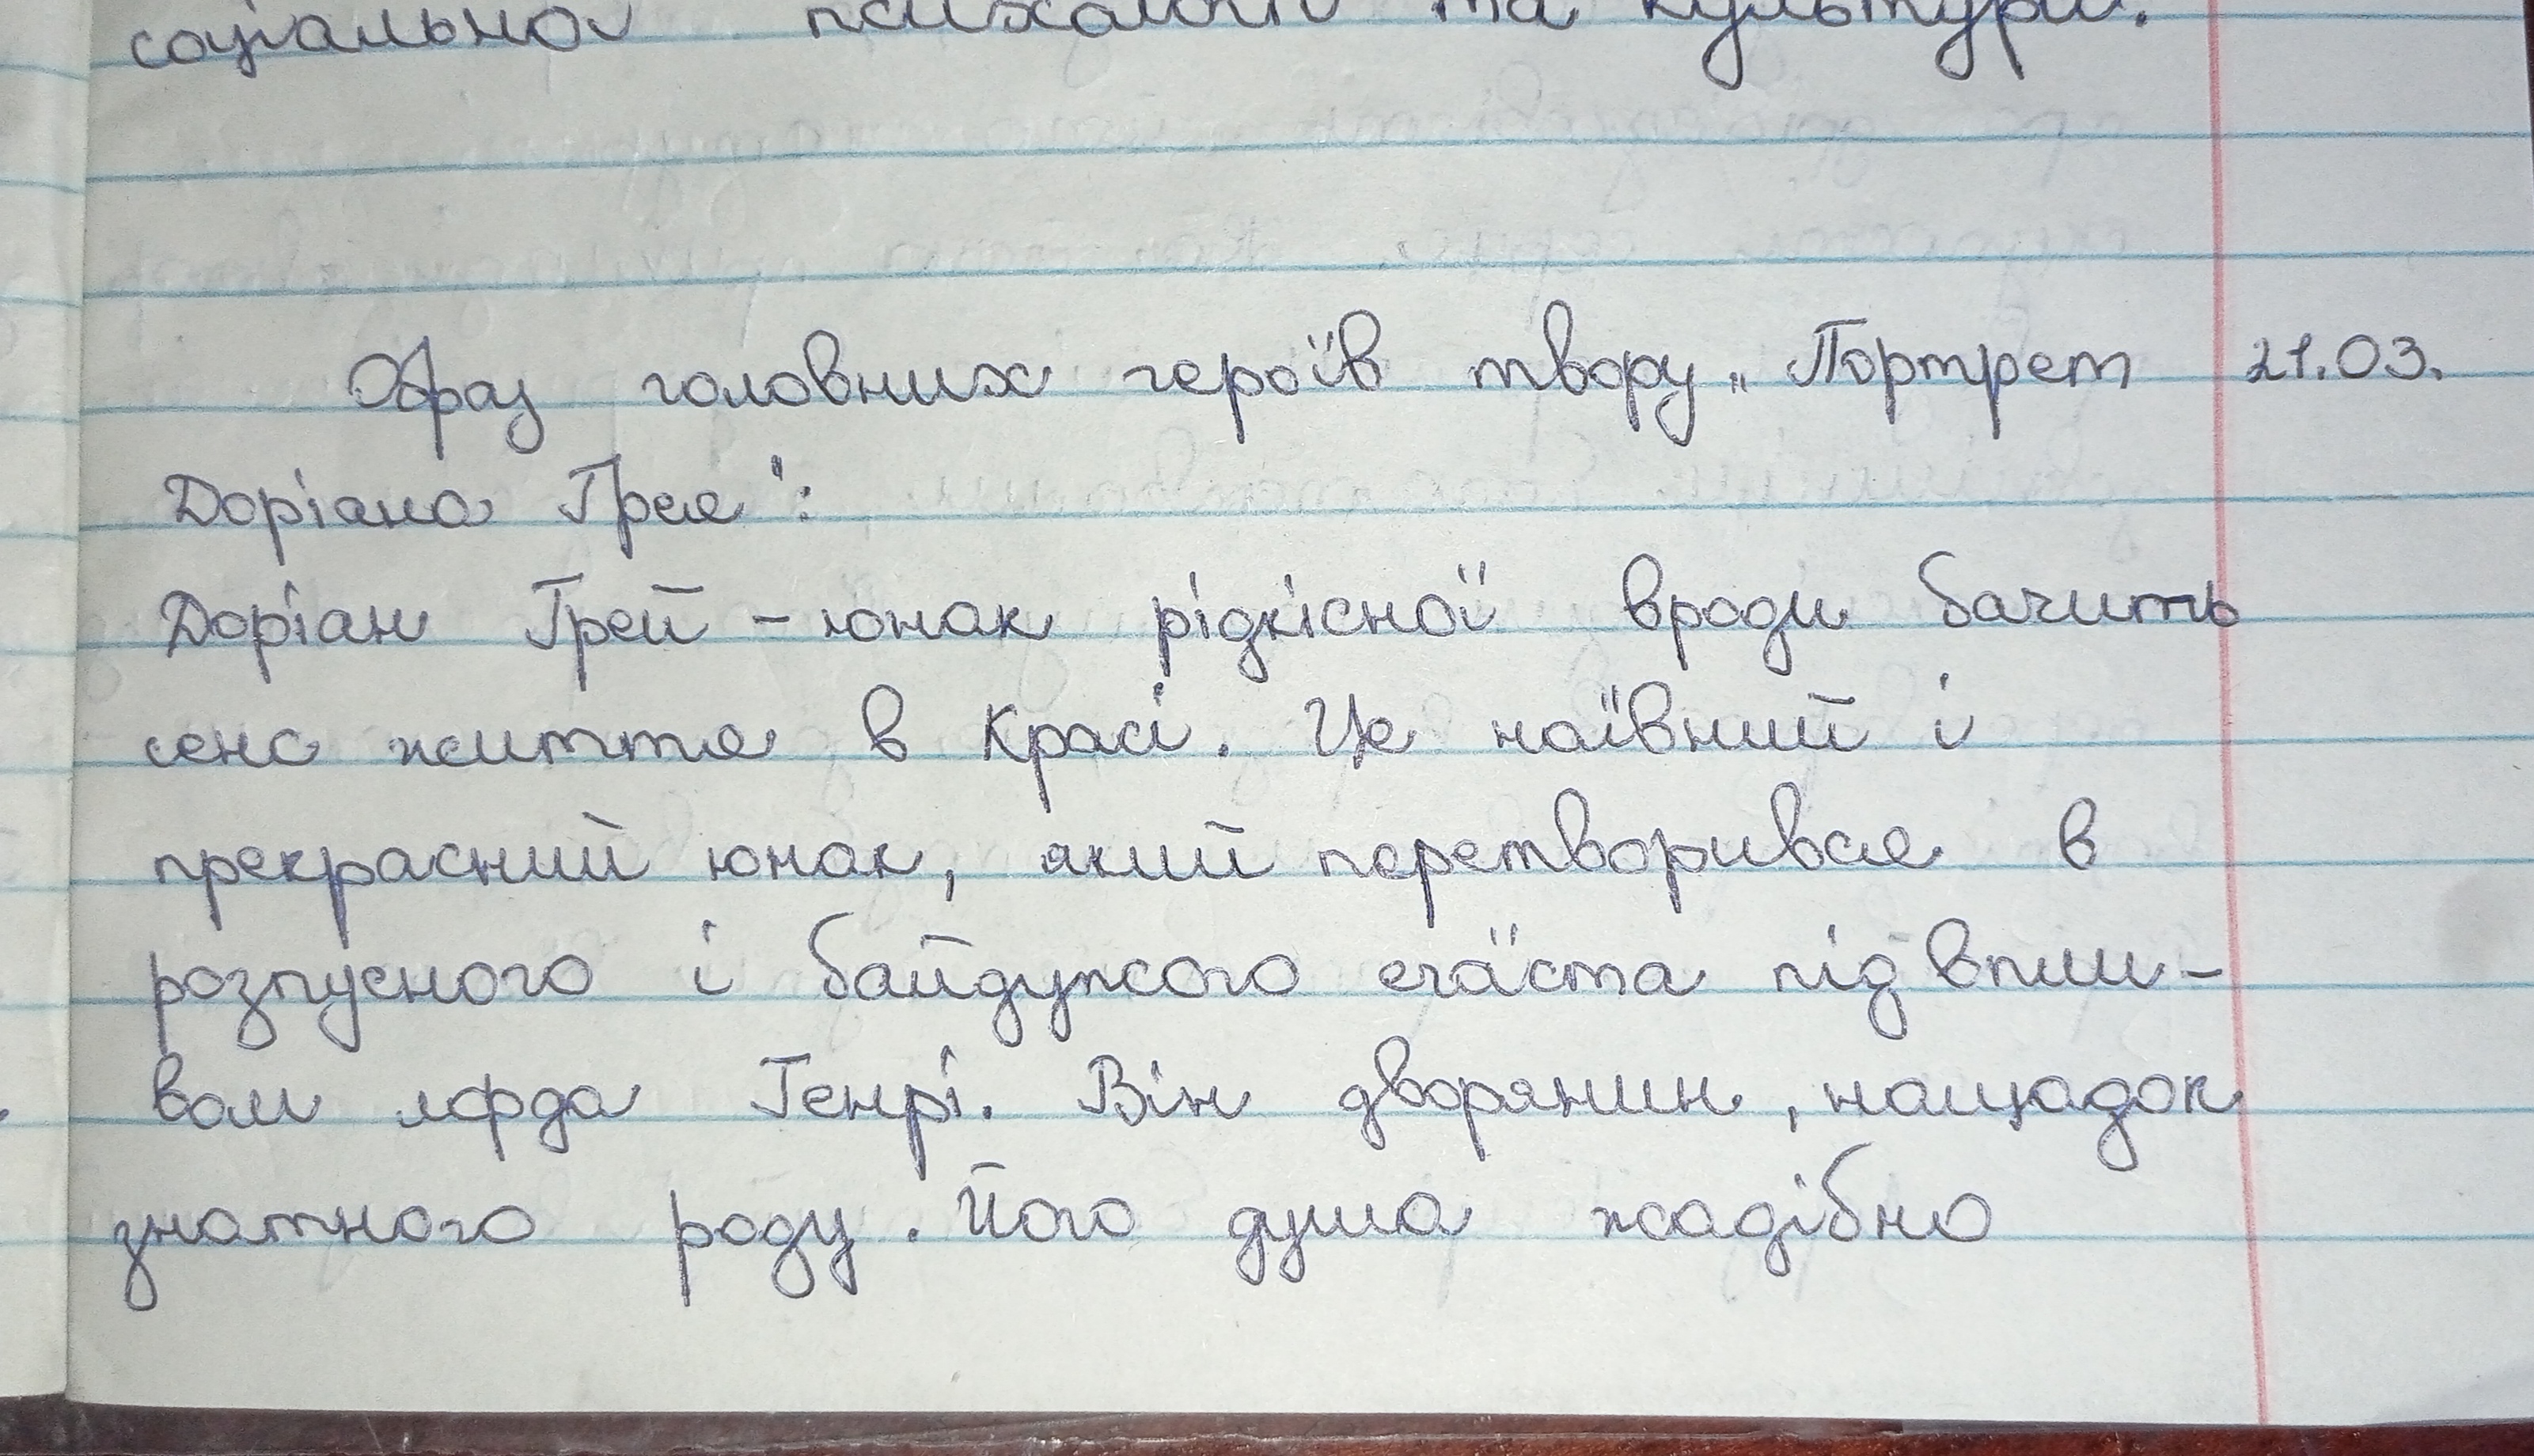 соціальної психології та культури.
Образ головних героїв твору „Портрет 21.03.
Доріана Грея":
Доріан Грей - юнак рідкісної вроди бачить
сенс життя в Красі. Це наївний і
прекрасний юнак, який перетворився в
розпусного і байдужого егоїста під впли-
вом лорда Генрі. Він дворянин, нащадок
знатного роду. Його душа жадібно